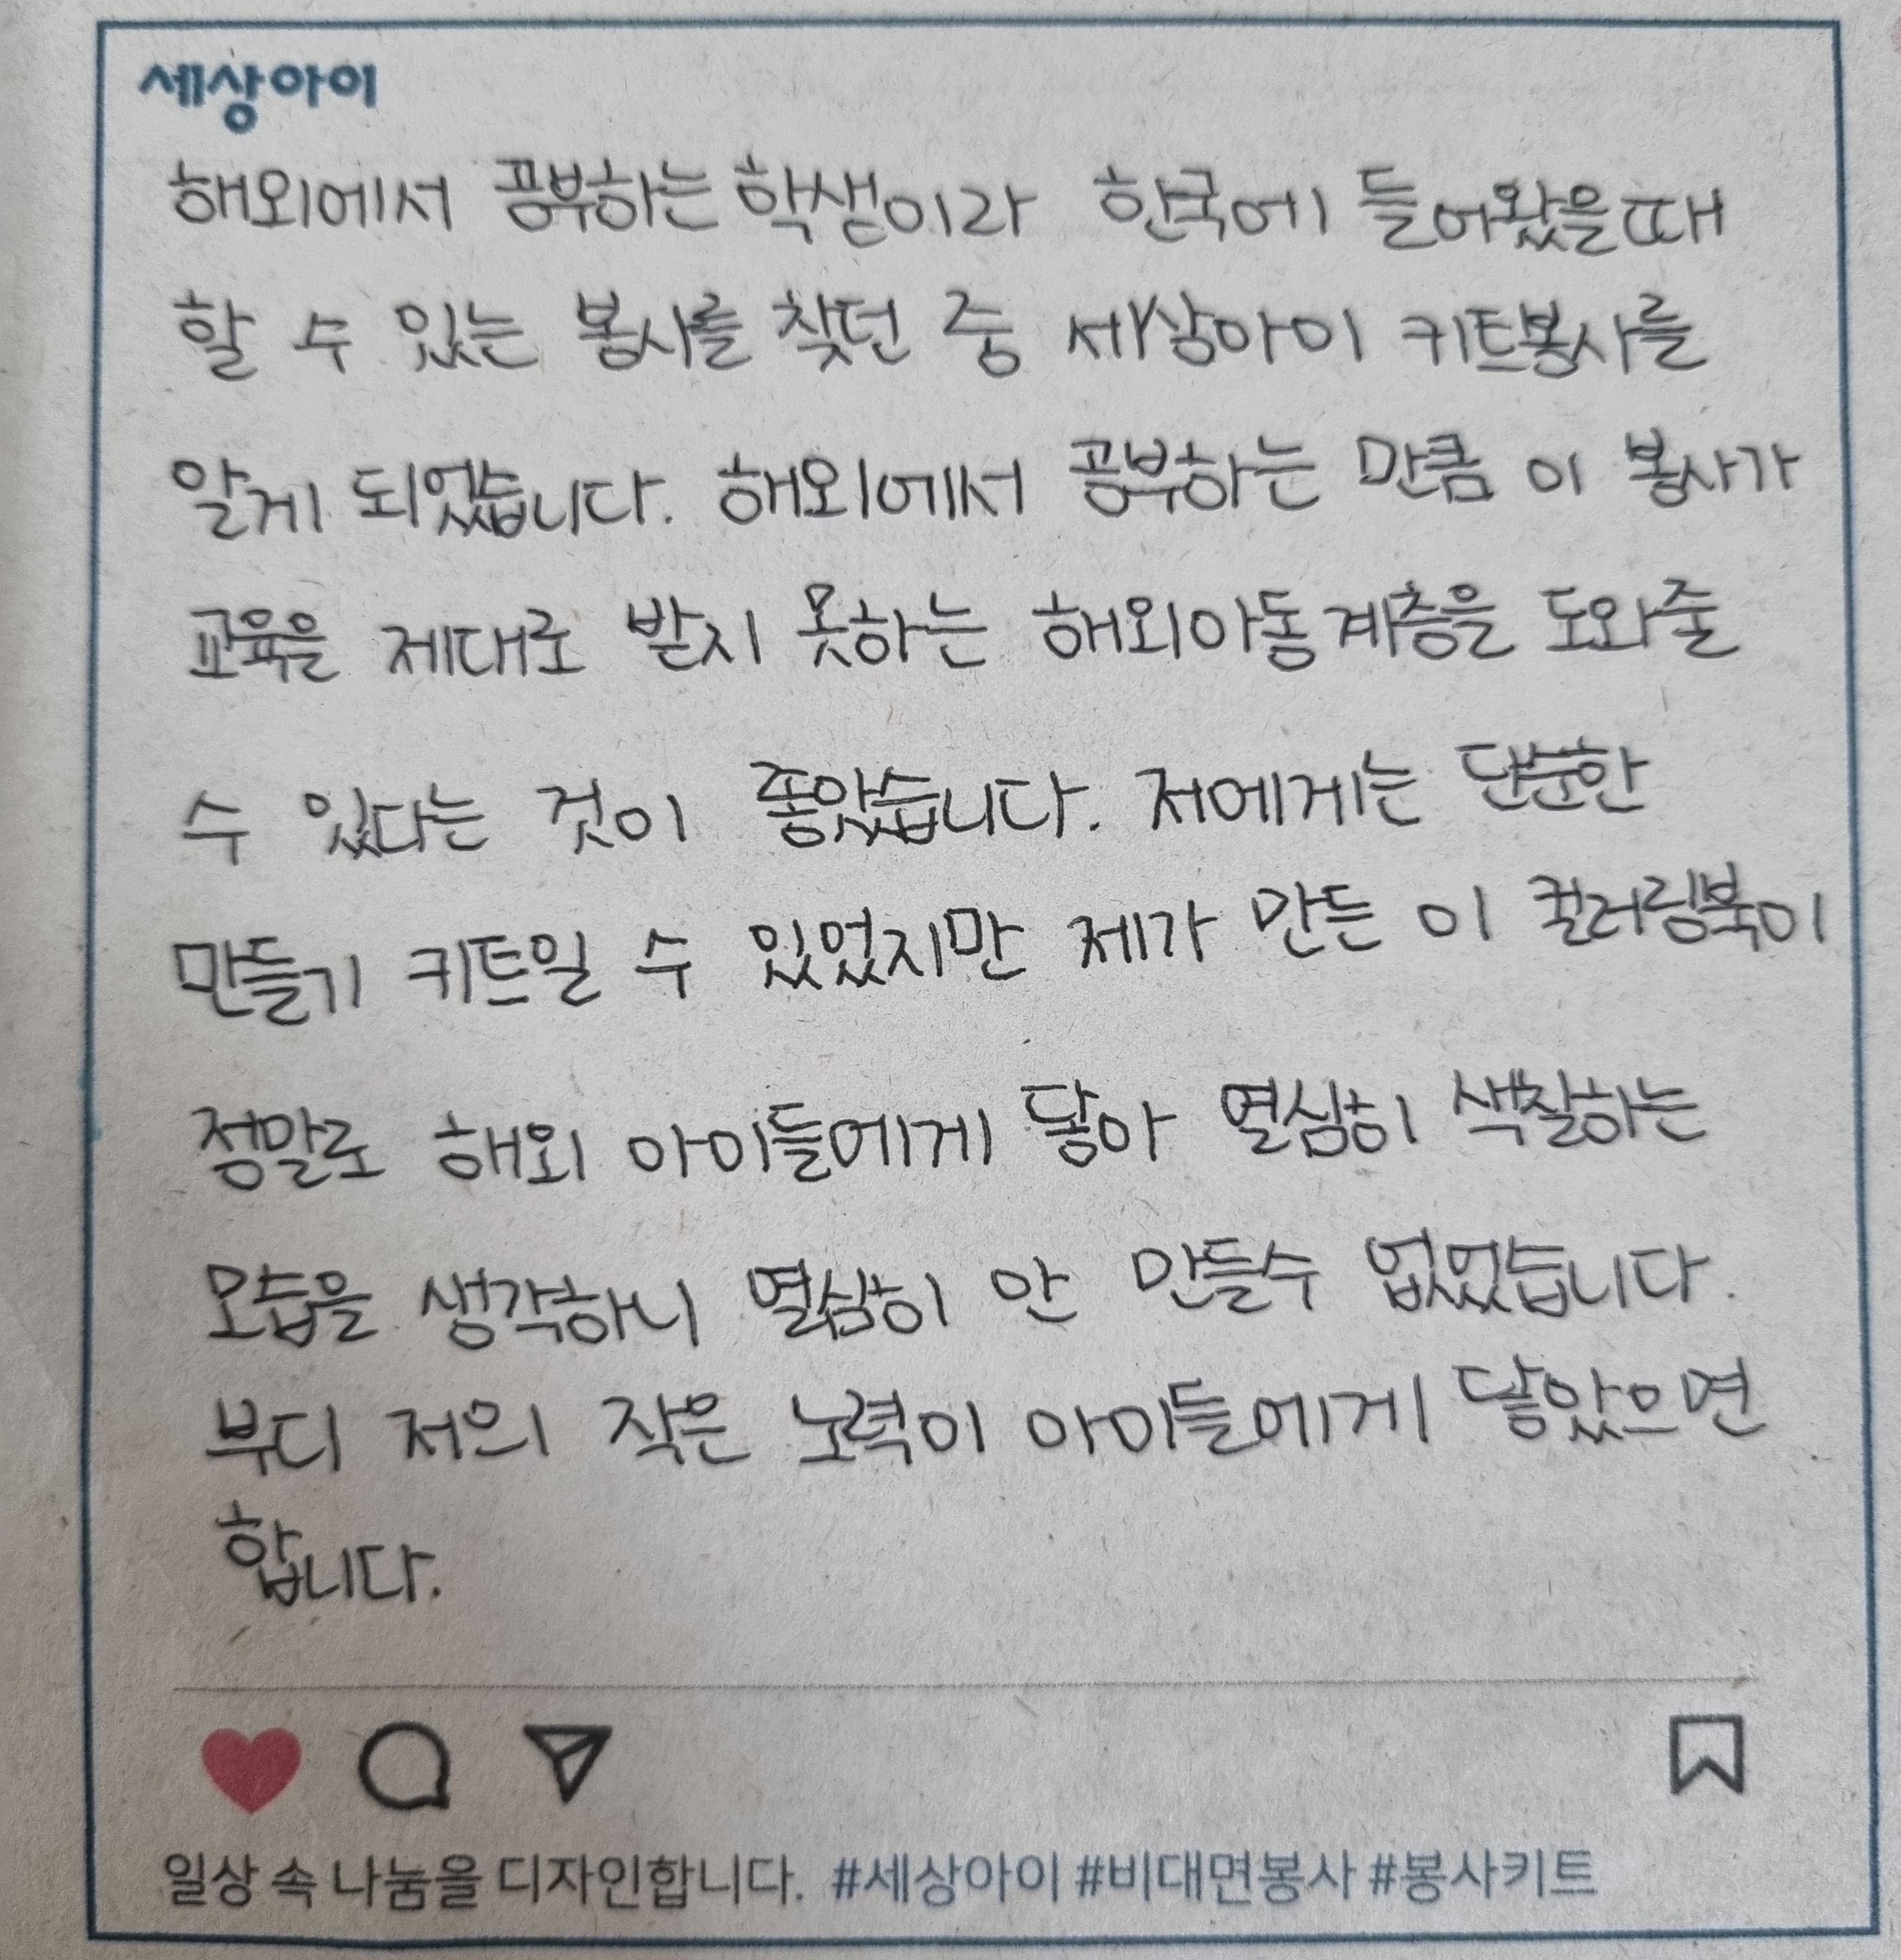 세상아이
해외에서 공부하는 학생이라 한국에 들어왔을때
할 수 있는 봉사를 찾던 중 세상아이 키트봉사를
알게 되었습니다. 해외에서 공부하는 만큼 이 봉사가
교육을 제대로 받지 못하는 해외아동계층을 도와줄
수 있다는 것이 좋았습니다. 저에게는 단순한
만들기 키트일 수 있었지만 제가 만든 이 컬러링북이
정말로 해외 아이들에게 닿아 열심히 색칠하는
모습을 생각하니 열심히 안 만들수 없었습니다.
부디 저의 작은 노력이 아이들에게 닿았으면
합니다.
일상 속 나눔을 디자인합니다. #세상아이 #비대면봉사 #봉사키트